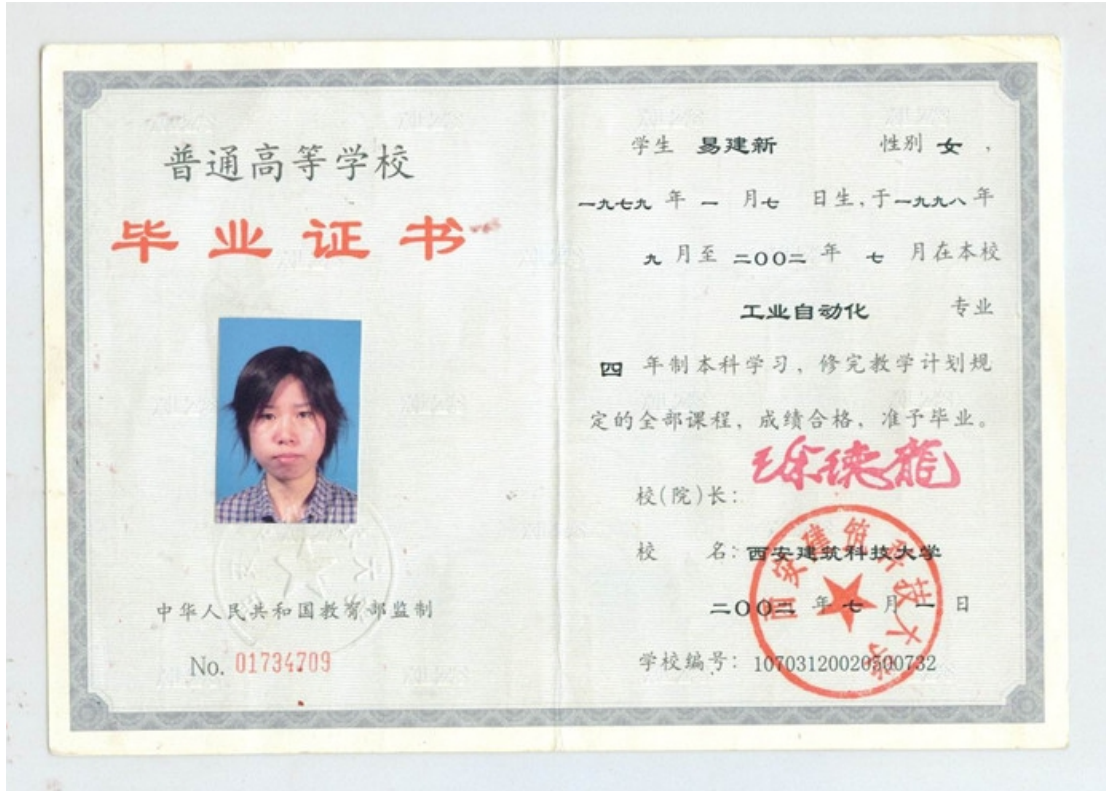 普通高等学校
毕业证书
中华人民共和国教育部监制
No. 01734709
学生 易建新 性别 女 ,
一九七九 年 一 月七 日生,于一九九八年
九 月至 二〇〇二 年 七 月在本校
工业自动化 专业
四 年制本科学习，修完教学计划规
定的全部课程，成绩合格，准予毕业。
校(院)长: 徐德龙
校 名: 西安建筑科技大学
二〇〇二 年 七 月 一 日
学校编号: 10703120020500732
西安建筑科技大学